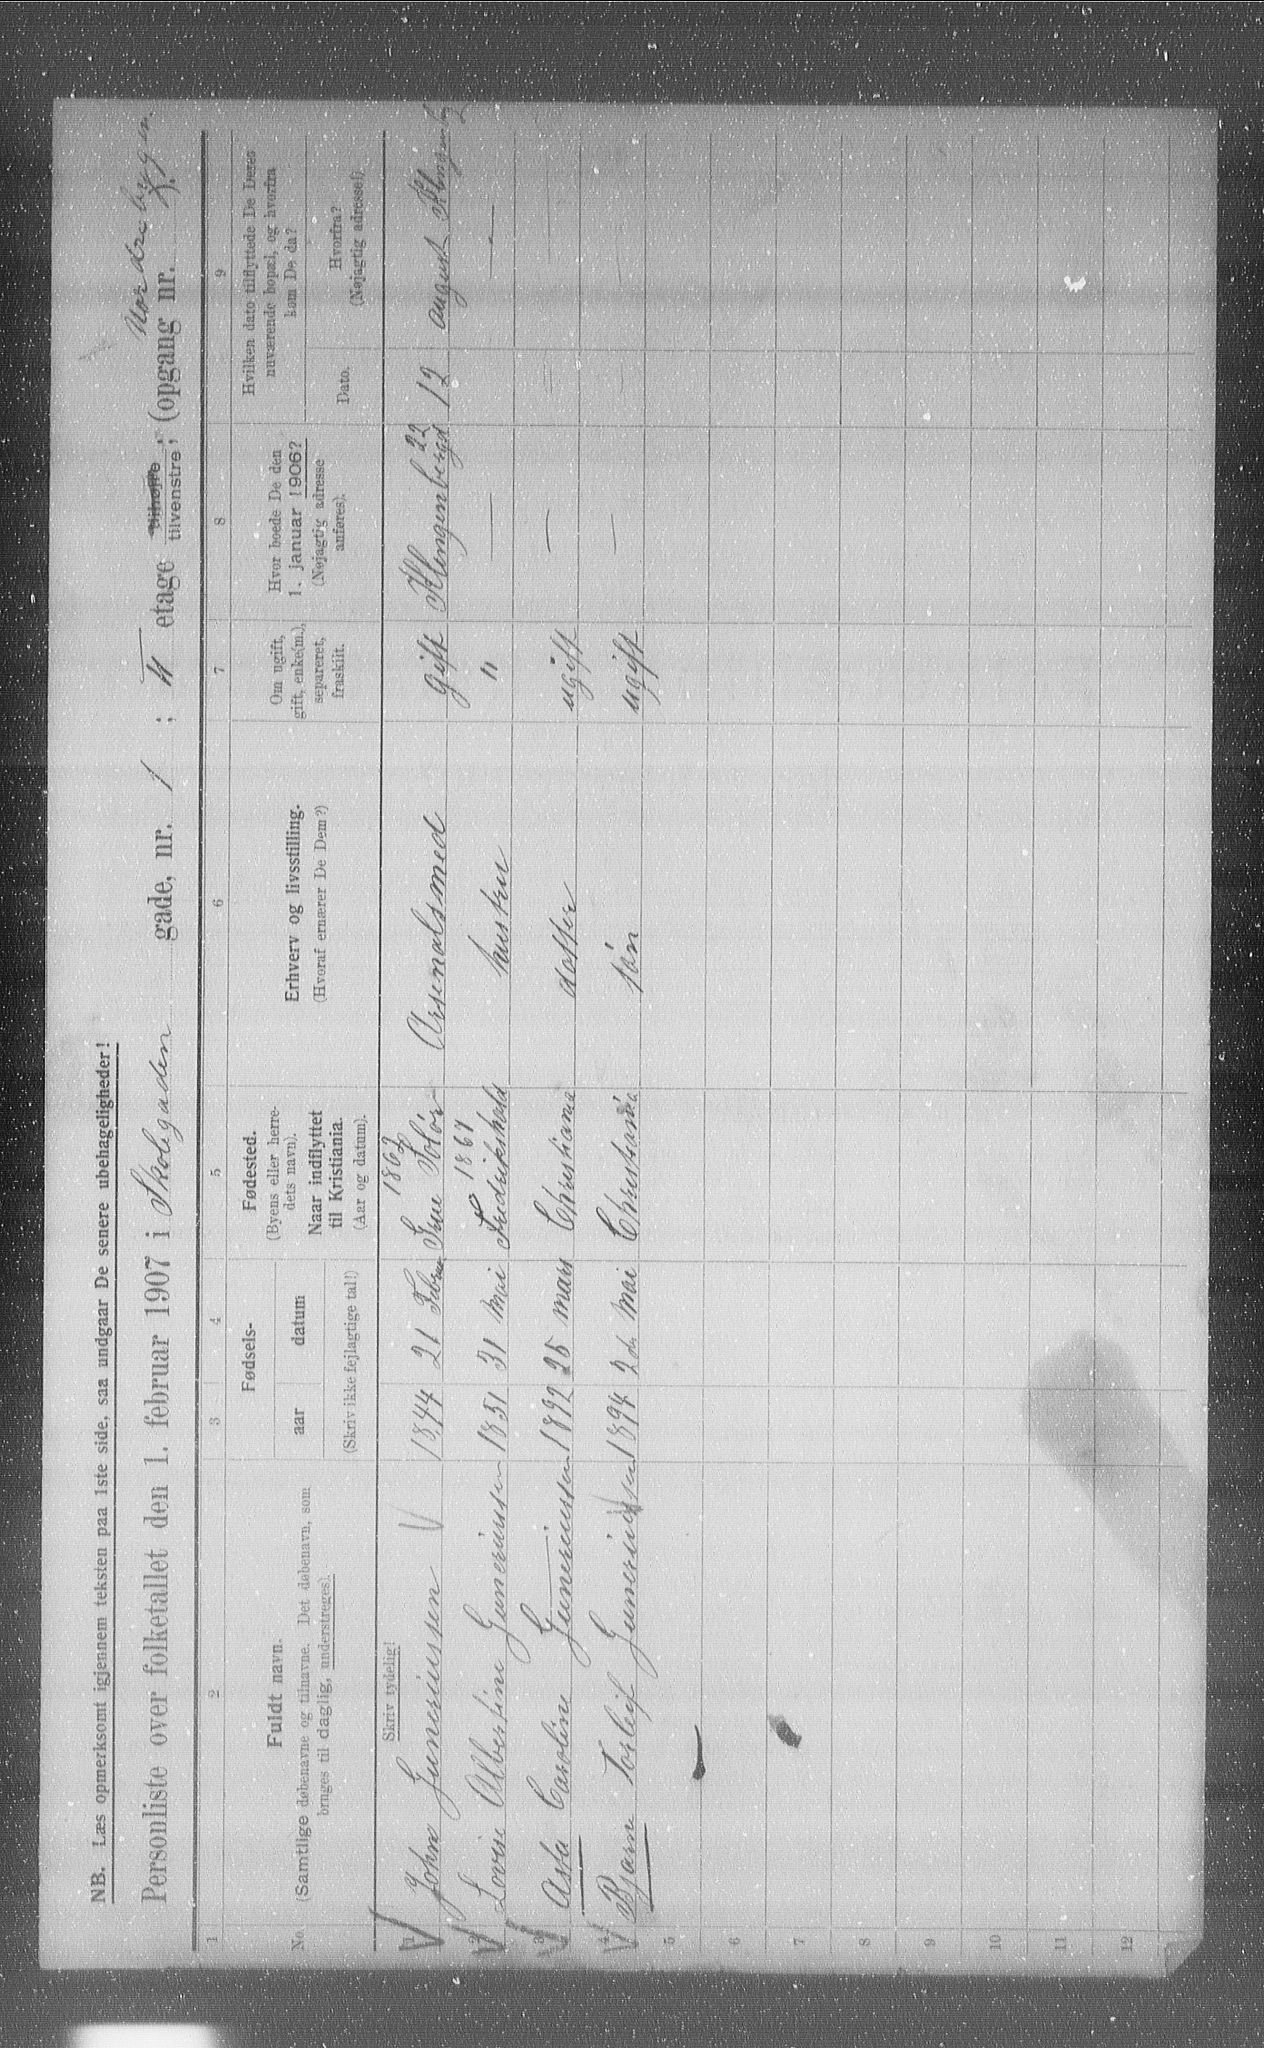 NB. Læs opmerksomt igjennem teksten paa 1ste side, saa undgaar De senere ubehageligheder!
Nordrebygin.
Personliste over folketallet den 1. februar 1907 i Skolegaden gade, nr. 1 ; II etage tilhøjre tilvenstre ; (opgang nr.
1 2 3 4 5 6 7 8 9
No. Fuldt navn. (Samtlige døbenavne og tilnavne. Det døbenavn, som bruges til daglig, understreges).
Fødsels- aar datum (Skriv ikke fejlagtige tal!)
Fødested. (Byens eller herredets navn). Naar indflyttet til Kristiania. (Aar og datum).
Erhverv og livsstilling. (Hvoraf ernærer De Dem?)
Om ugift, gift, enke(m.), separeret, fraskilt.
Hvor boede De den 1. januar 1906? (Nøjagtig adresse anføres).
Hvilken dato tilflyttede De Deres nuværende bopæl, og hvorfra kom De da?
Dato. Hvorfra? (Nøjagtig adresse!)
Skriv tydelig!
1 John Guneriussen 1844 21 Febru Grue Solör Arsenalsmed gift Klingenbergd 22 12 august
2 Lovise Albertine Guneriussen 1851 31 Mai Fredrikshald 1867 hustru " — —
3 Asta Caroline Guneriussen 1892 25 mars Christiania datter ugift —
4 Bjarne Torleif Guneriussen 1894 2de Mai Christiania sön ugift —
5
6
7
8
9
10
11
12